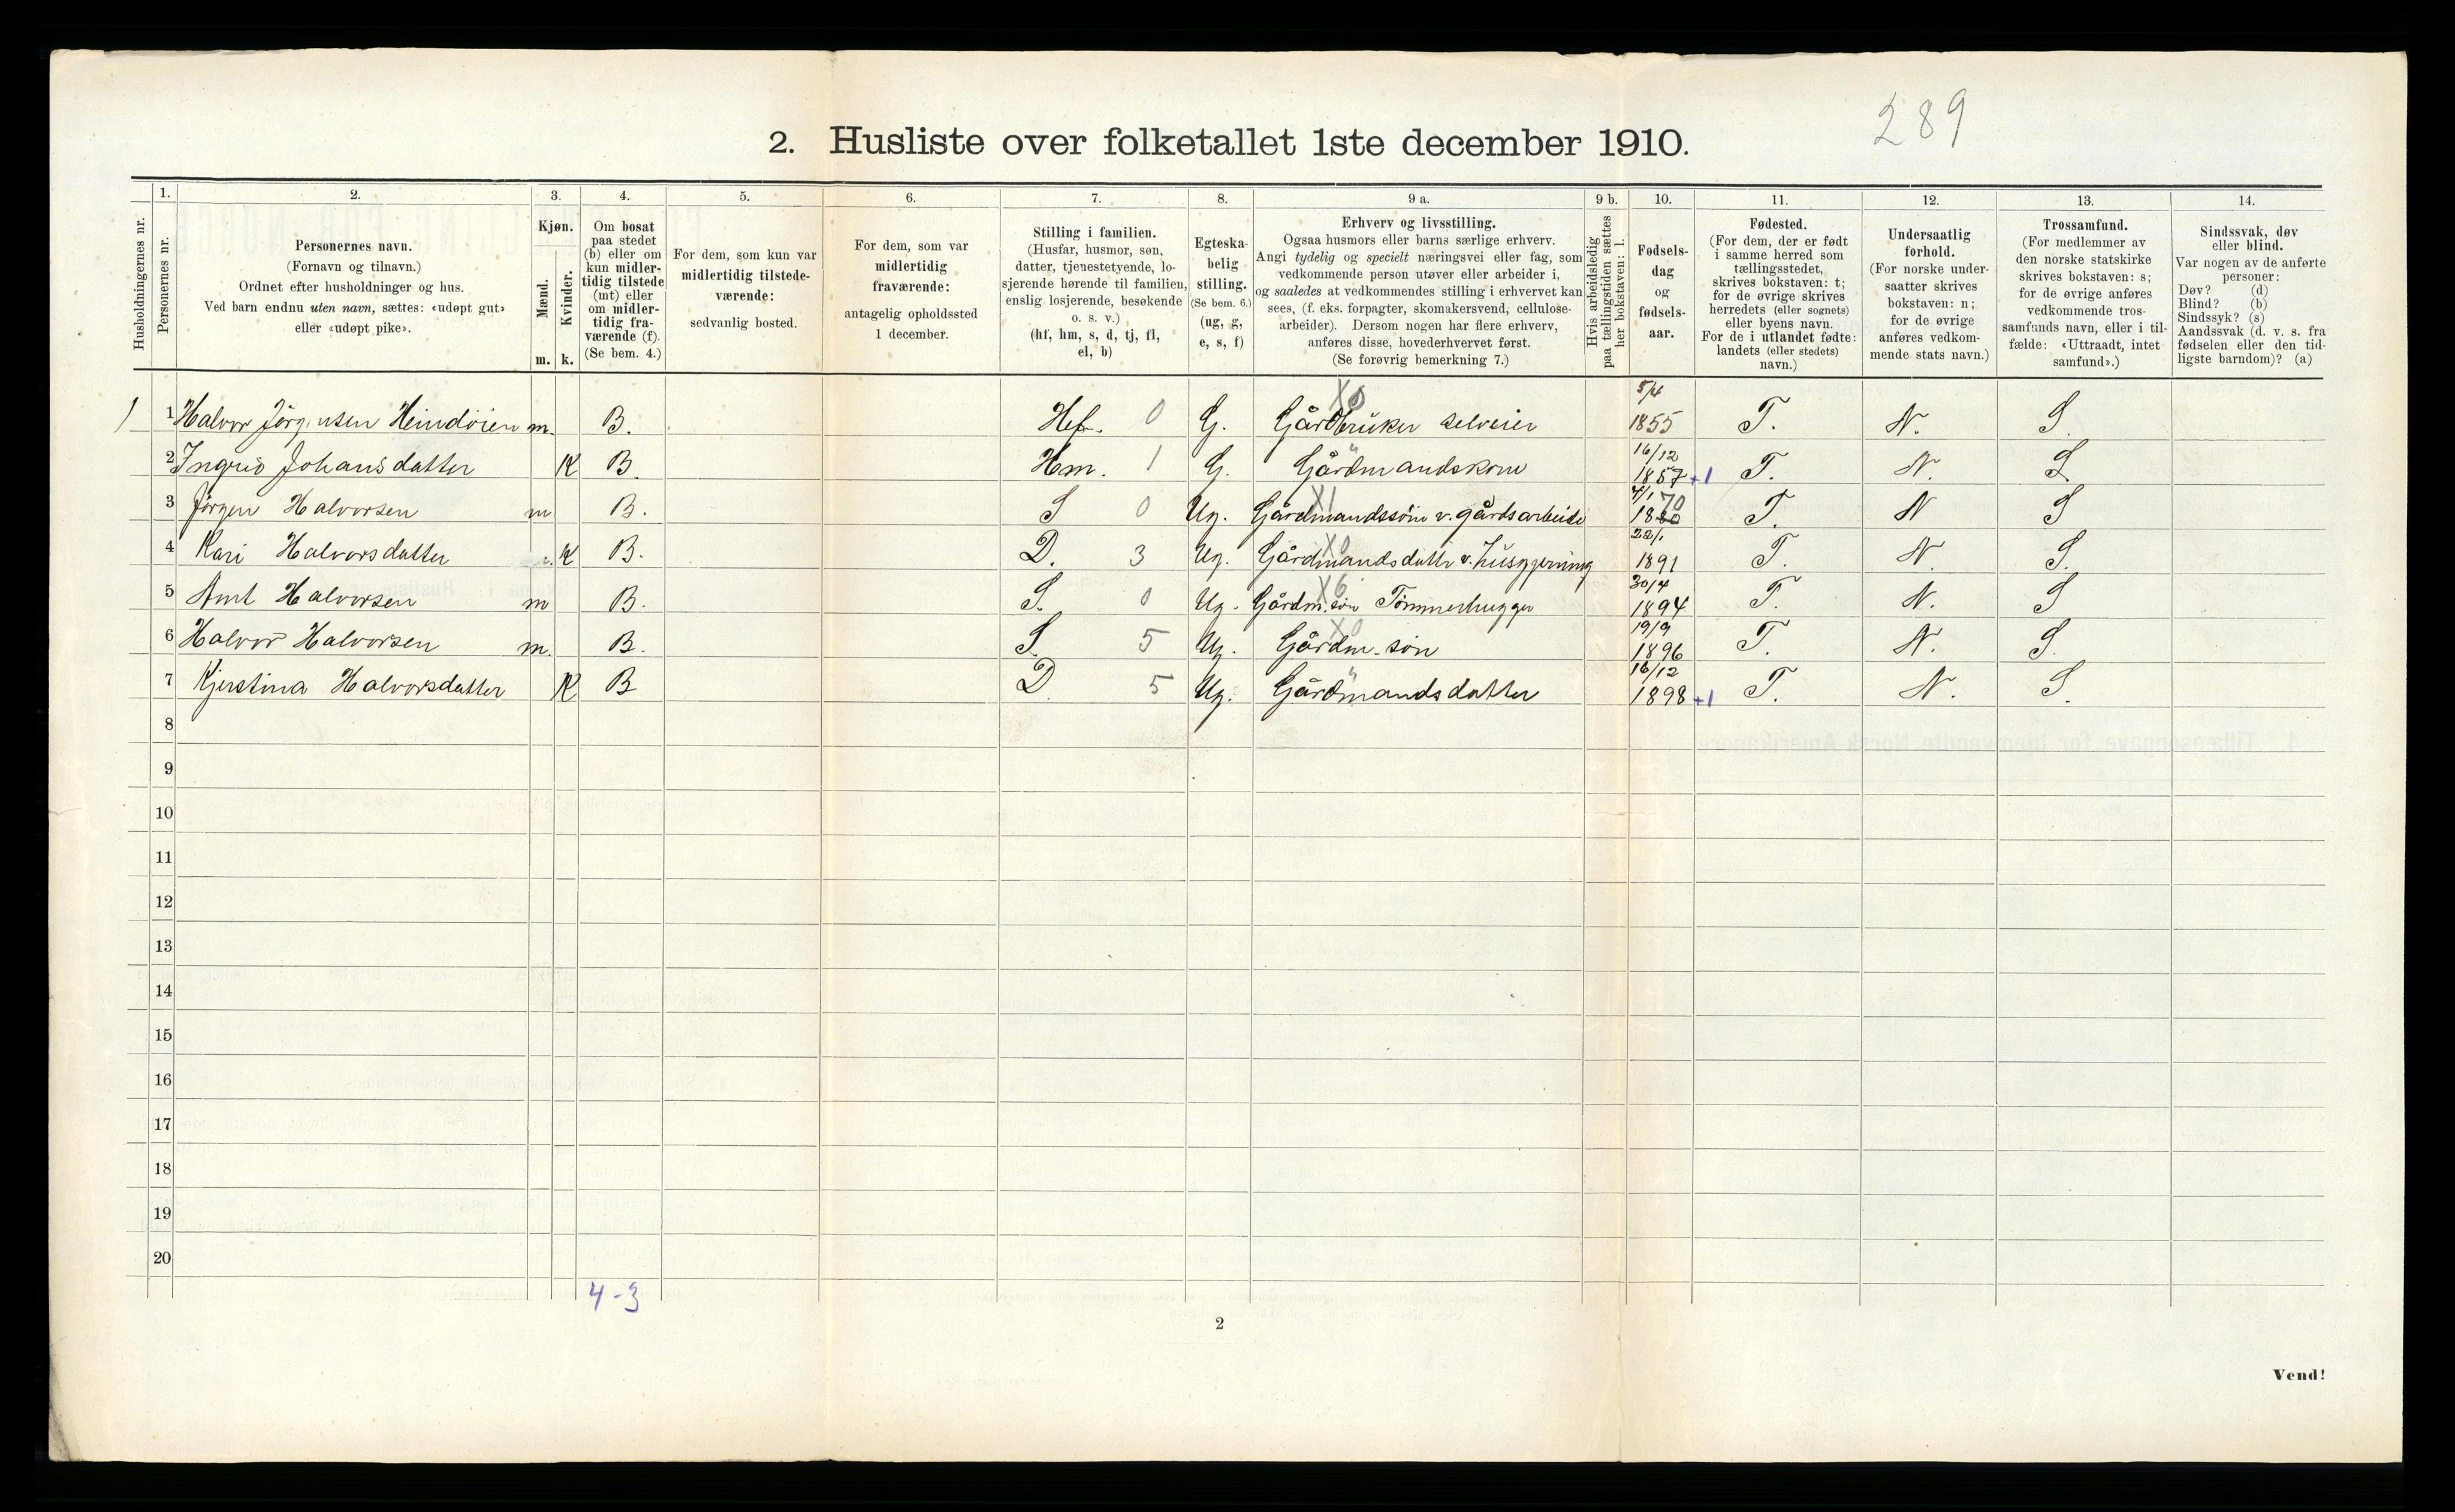 289
2. Husliste over folketallet 1ste december 1910.
Husholdningernes nr.
1.
Personernes nr.
2.
Personernes navn.
(Fornavn og tilnavn.)
Ordnet efter husholdninger og hus.
Ved barn endnu uten navn, sættes: «udøpt gut»
eller «udøpt pike».
3.
Kjøn.
Mænd.
Kvinder.
m. k.
4.
Om bosat
paa stedet
(b) eller om
kun midler-
tidig tilstede
(mt) eller
om midler-
tidig fra-
værende (f).
(Se bem. 4.)
5.
For dem, som kun var
midlertidig tilstede-
værende:
sedvanlig bosted.
6.
For dem, som var
midlertidig
fraværende:
antagelig opholdssted
1 december.
7.
Stilling i familien.
(Husfar, husmor, søn,
datter, tjenestetyende, lo-
sjerende hørende til familien,
enslig losjerende, besøkende
o. s. v.)
(hf, hm, s, d, tj, fl,
el, b)
8.
Egteska-
belig
stilling.
(Se bem. 6.)
(ug, g,
e, s, f)
9 a.
Erhverv og livsstilling.
Ogsaa husmors eller barns særlige erhverv.
Angi tydelig og specielt næringsvei eller fag, som
vedkommende person utøver eller arbeider i,
og saaledes at vedkommendes stilling i erhvervet kan
sees, (f. eks. forpagter, skomakersvend, cellulose-
arbeider). Dersom nogen har flere erhverv,
anføres disse, hovederhvervet først.
(Se forøvrig bemerkning 7.)
9 b.
Hvis arbeidsledig
paa tællingstiden sættes
her bokstaven: l.
10.
Fødsels-
dag
og
fødsels-
aar.
11.
Fødested.
(For dem, der er født
i samme herred som
tællingsstedet,
skrives bokstaven: t;
for de øvrige skrives
herredets (eller sognets)
eller byens navn.
For de i utlandet fødte:
landets (eller stedets)
navn.)
12.
Undersaatlig
forhold.
(For norske under-
saatter skrives
bokstaven: n;
for de øvrige
anføres vedkom-
mende stats navn.)
13.
Trossamfund.
(For medlemmer av
den norske statskirke
skrives bokstaven: s;
for de øvrige anføres
vedkommende tros-
samfunds navn, eller i til-
fælde: «Uttraadt, intet
samfund».)
14.
Sindssvak, døv
eller blind.
Var nogen av de anførte
personer:
Døv? (d)
Blind? (b)
Sindssyk? (s)
Aandssvak (d. v. s. fra
fødselen eller den tid-
ligste barndom)? (a)
1) 1 Halvor Jörgensen Heindöien m. B. Hf. 0 G. X0 Gårdbruker selveier 5/4 1855 T. N. S.
2 Ingrid Johansdatter K B. Hm. 1 G. " Gårdmandskone 16/12 1857 +1 T. N. S.
3 Jörgen Halvorsen m B. S 0 Ug. X1 Gårdmandssön v. gårdsarbeide 7/1 70 1880 T. N S
4 Kari Halvorsdatter K B. D. 3 Ug. X0 Gårdmandsdatter v. husgjerning 22/1 1891 T. N. S.
5 Amt Halvorsen m B. S. 0 Ug. X6 Gårdm. sön Tömmerhugger 30/4 1894 T. N. S
6 Halvor Halvorsen m. B. S. 5 Ug. X0 Gårdm. sön 19/9 1896 T. N. S.
7 Kjerstina Halvorsdatter K B D. 5 Ug. " Gårdmandsdatter 16/12 1898 +1 T. N. S.
8
9
10
11
12
13
14
15
16
17
18
19
20
4-3
2
Vend!